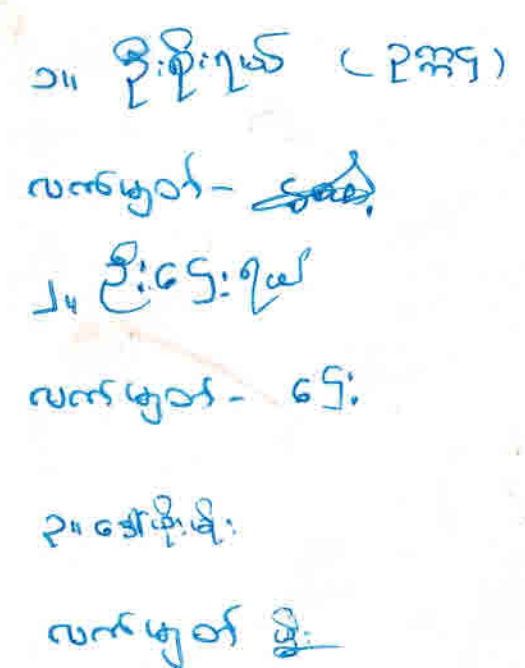 ၁။ ဦးစိုးရယ် (ဥက္ကဌ)
လက်မျှတ်-
၂။ ဦးငှေးရယ်
လက်မျှတ်- ငှေး
၃။ ဒေါ်မိုးမိုး
လက်မျှတ်